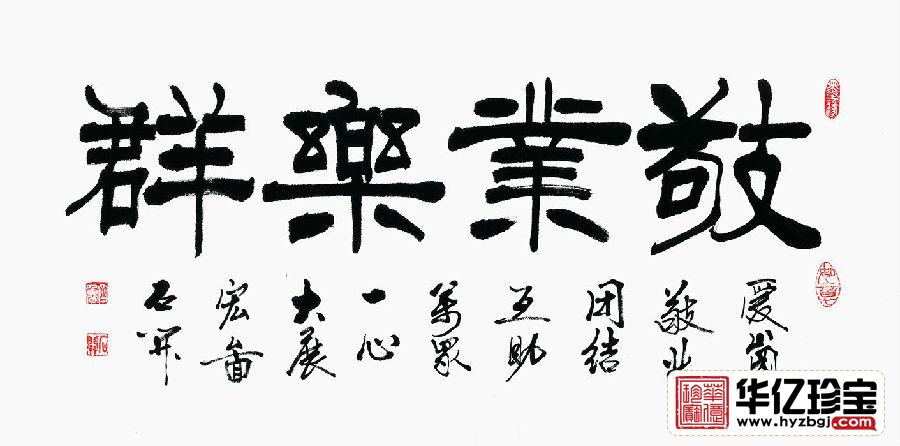 敬業樂群
爱岗
敬业
团结
互助
萬眾
一心
大展
宏畵
石開
华亿珍宝
www.hyzbgj.com